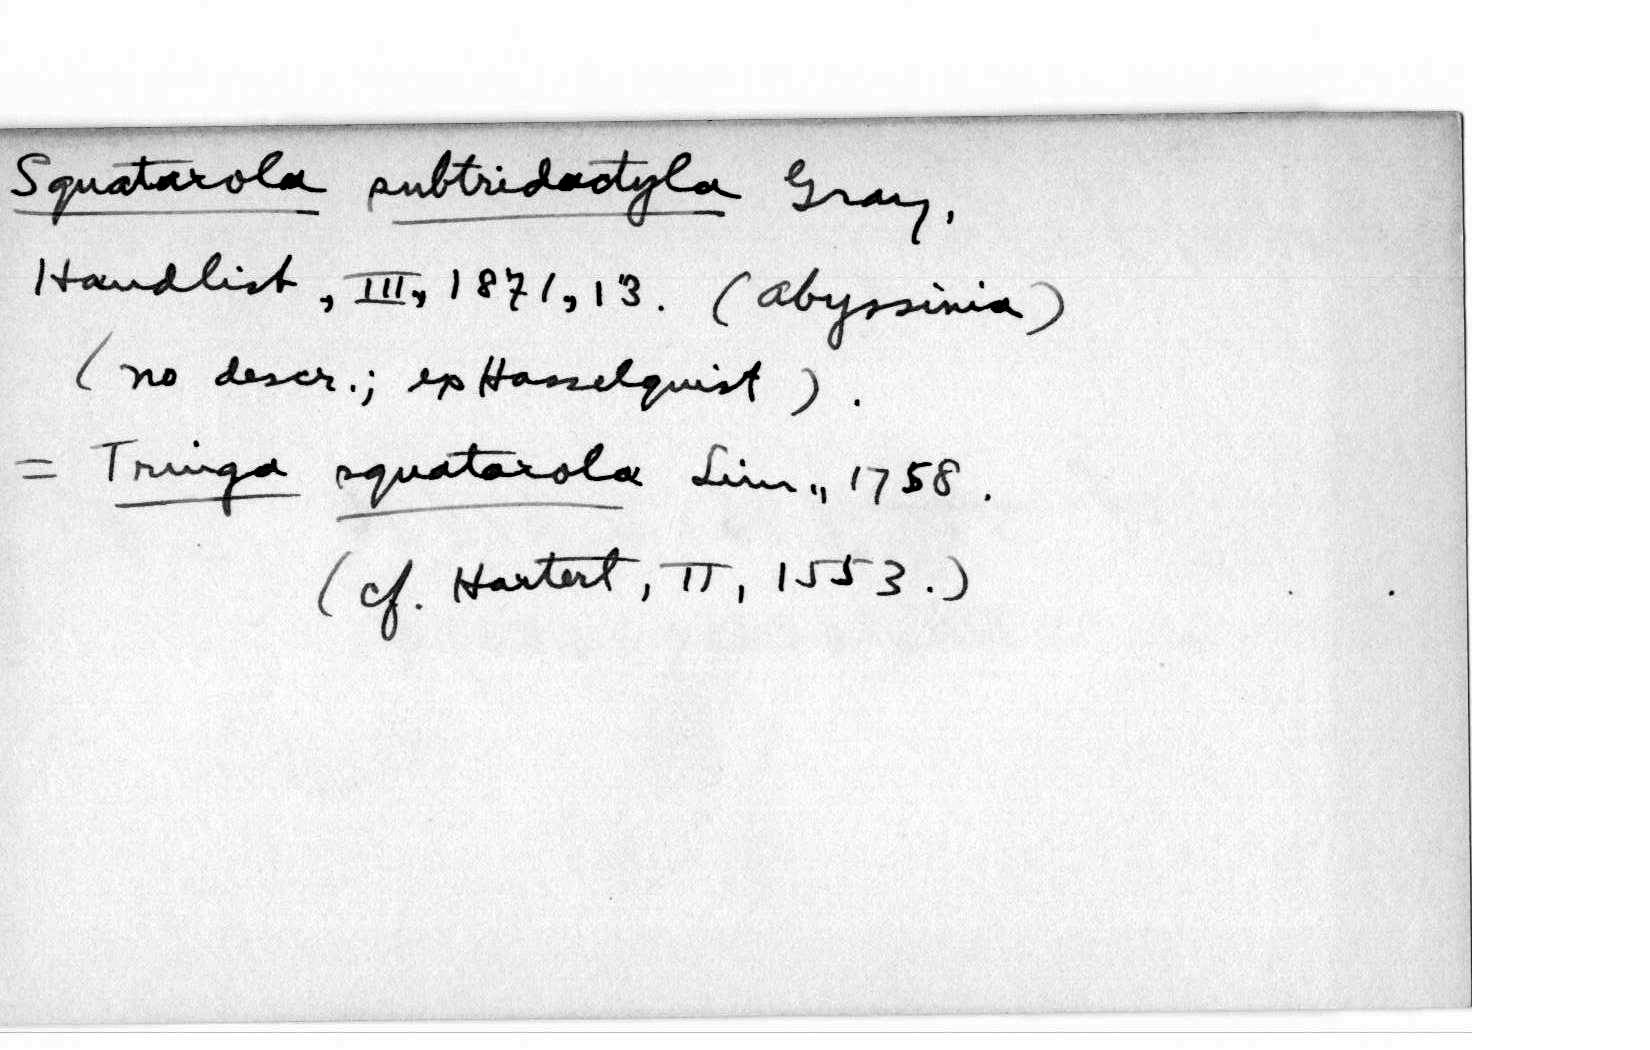 Squatarola subtridactyla Gray,
Handlist, III, 1871, 13. (Abyssinia)
(no descr.; ex Hasselquist).
= Tringa squatarola Linn., 1758.
(cf. Hartert, II, 1553.)